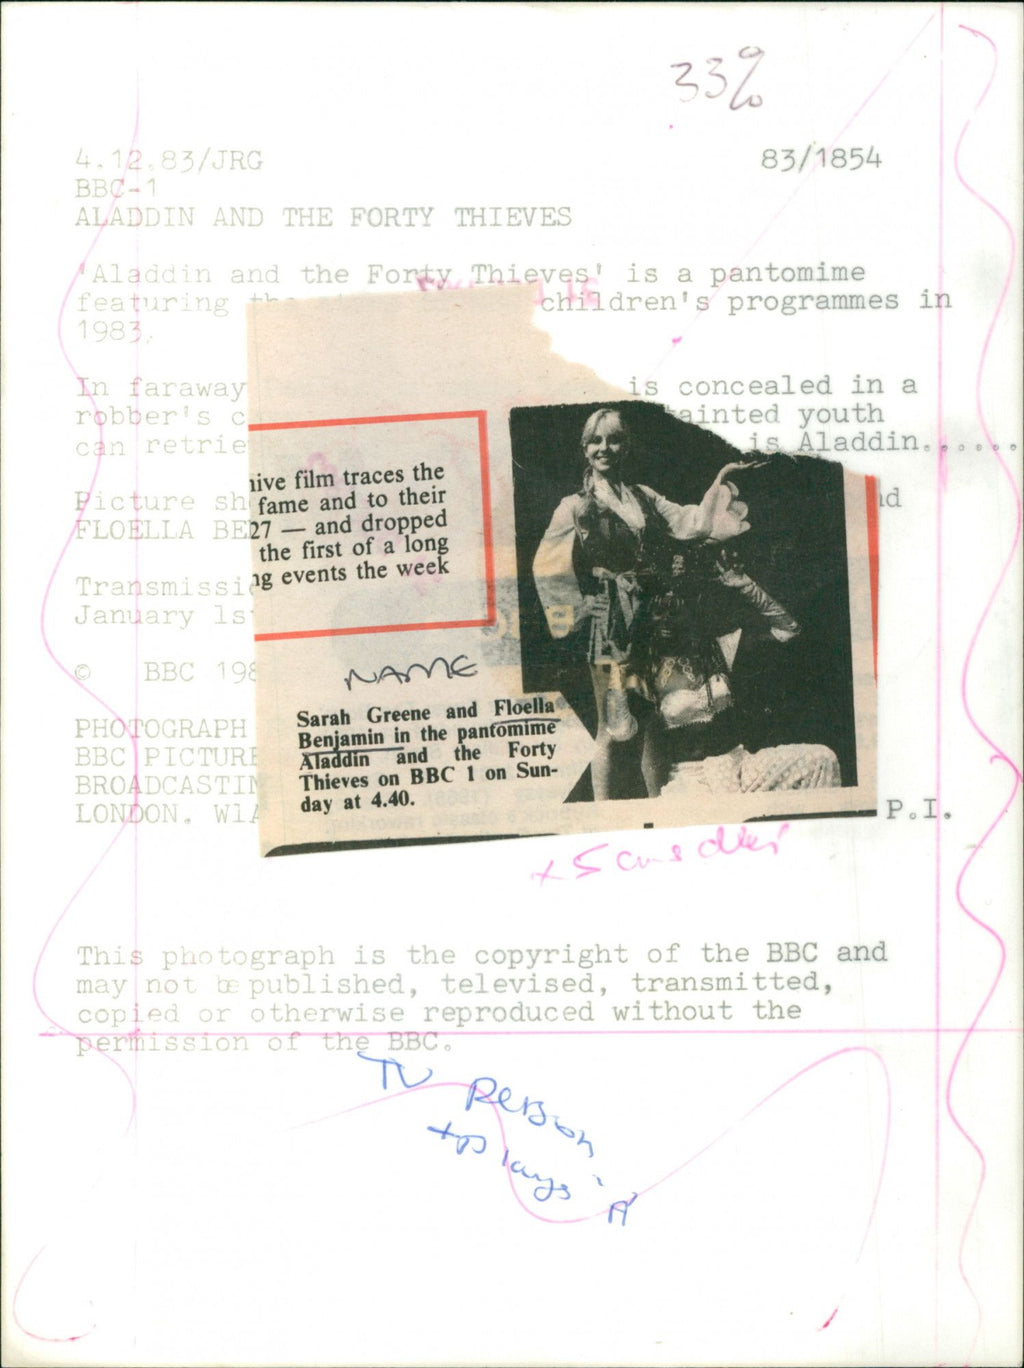 33%
4.12.83/JRG
83/1854
BBC-1
ALADDIN AND THE FORTY THIEVES
'Aladdin and the Forty Thieves' is a pantomime
featuring the children's programmes in
1983.
In faraway is concealed in a
robber's c tainted youth
can retrie is Aladdin......
Picture sh nd
FLOELLA BE
Transmissi
January 1s
© BBC 198
PHOTOGRAPH
BBC PICTURE
BROADCASTIN
LONDON. W1A P.I.
hive film traces the
fame and to their
27 — and dropped
the first of a long
ng events the week
NAME
Sarah Greene and Floella
Benjamin in the pantomime
Aladdin and the Forty
Thieves on BBC 1 on Sun-
day at 4.40.
This photograph is the copyright of the BBC and
may not be published, televised, transmitted,
copied or otherwise reproduced without the
permission of the BBC.
TV Person
+ plays 'A'